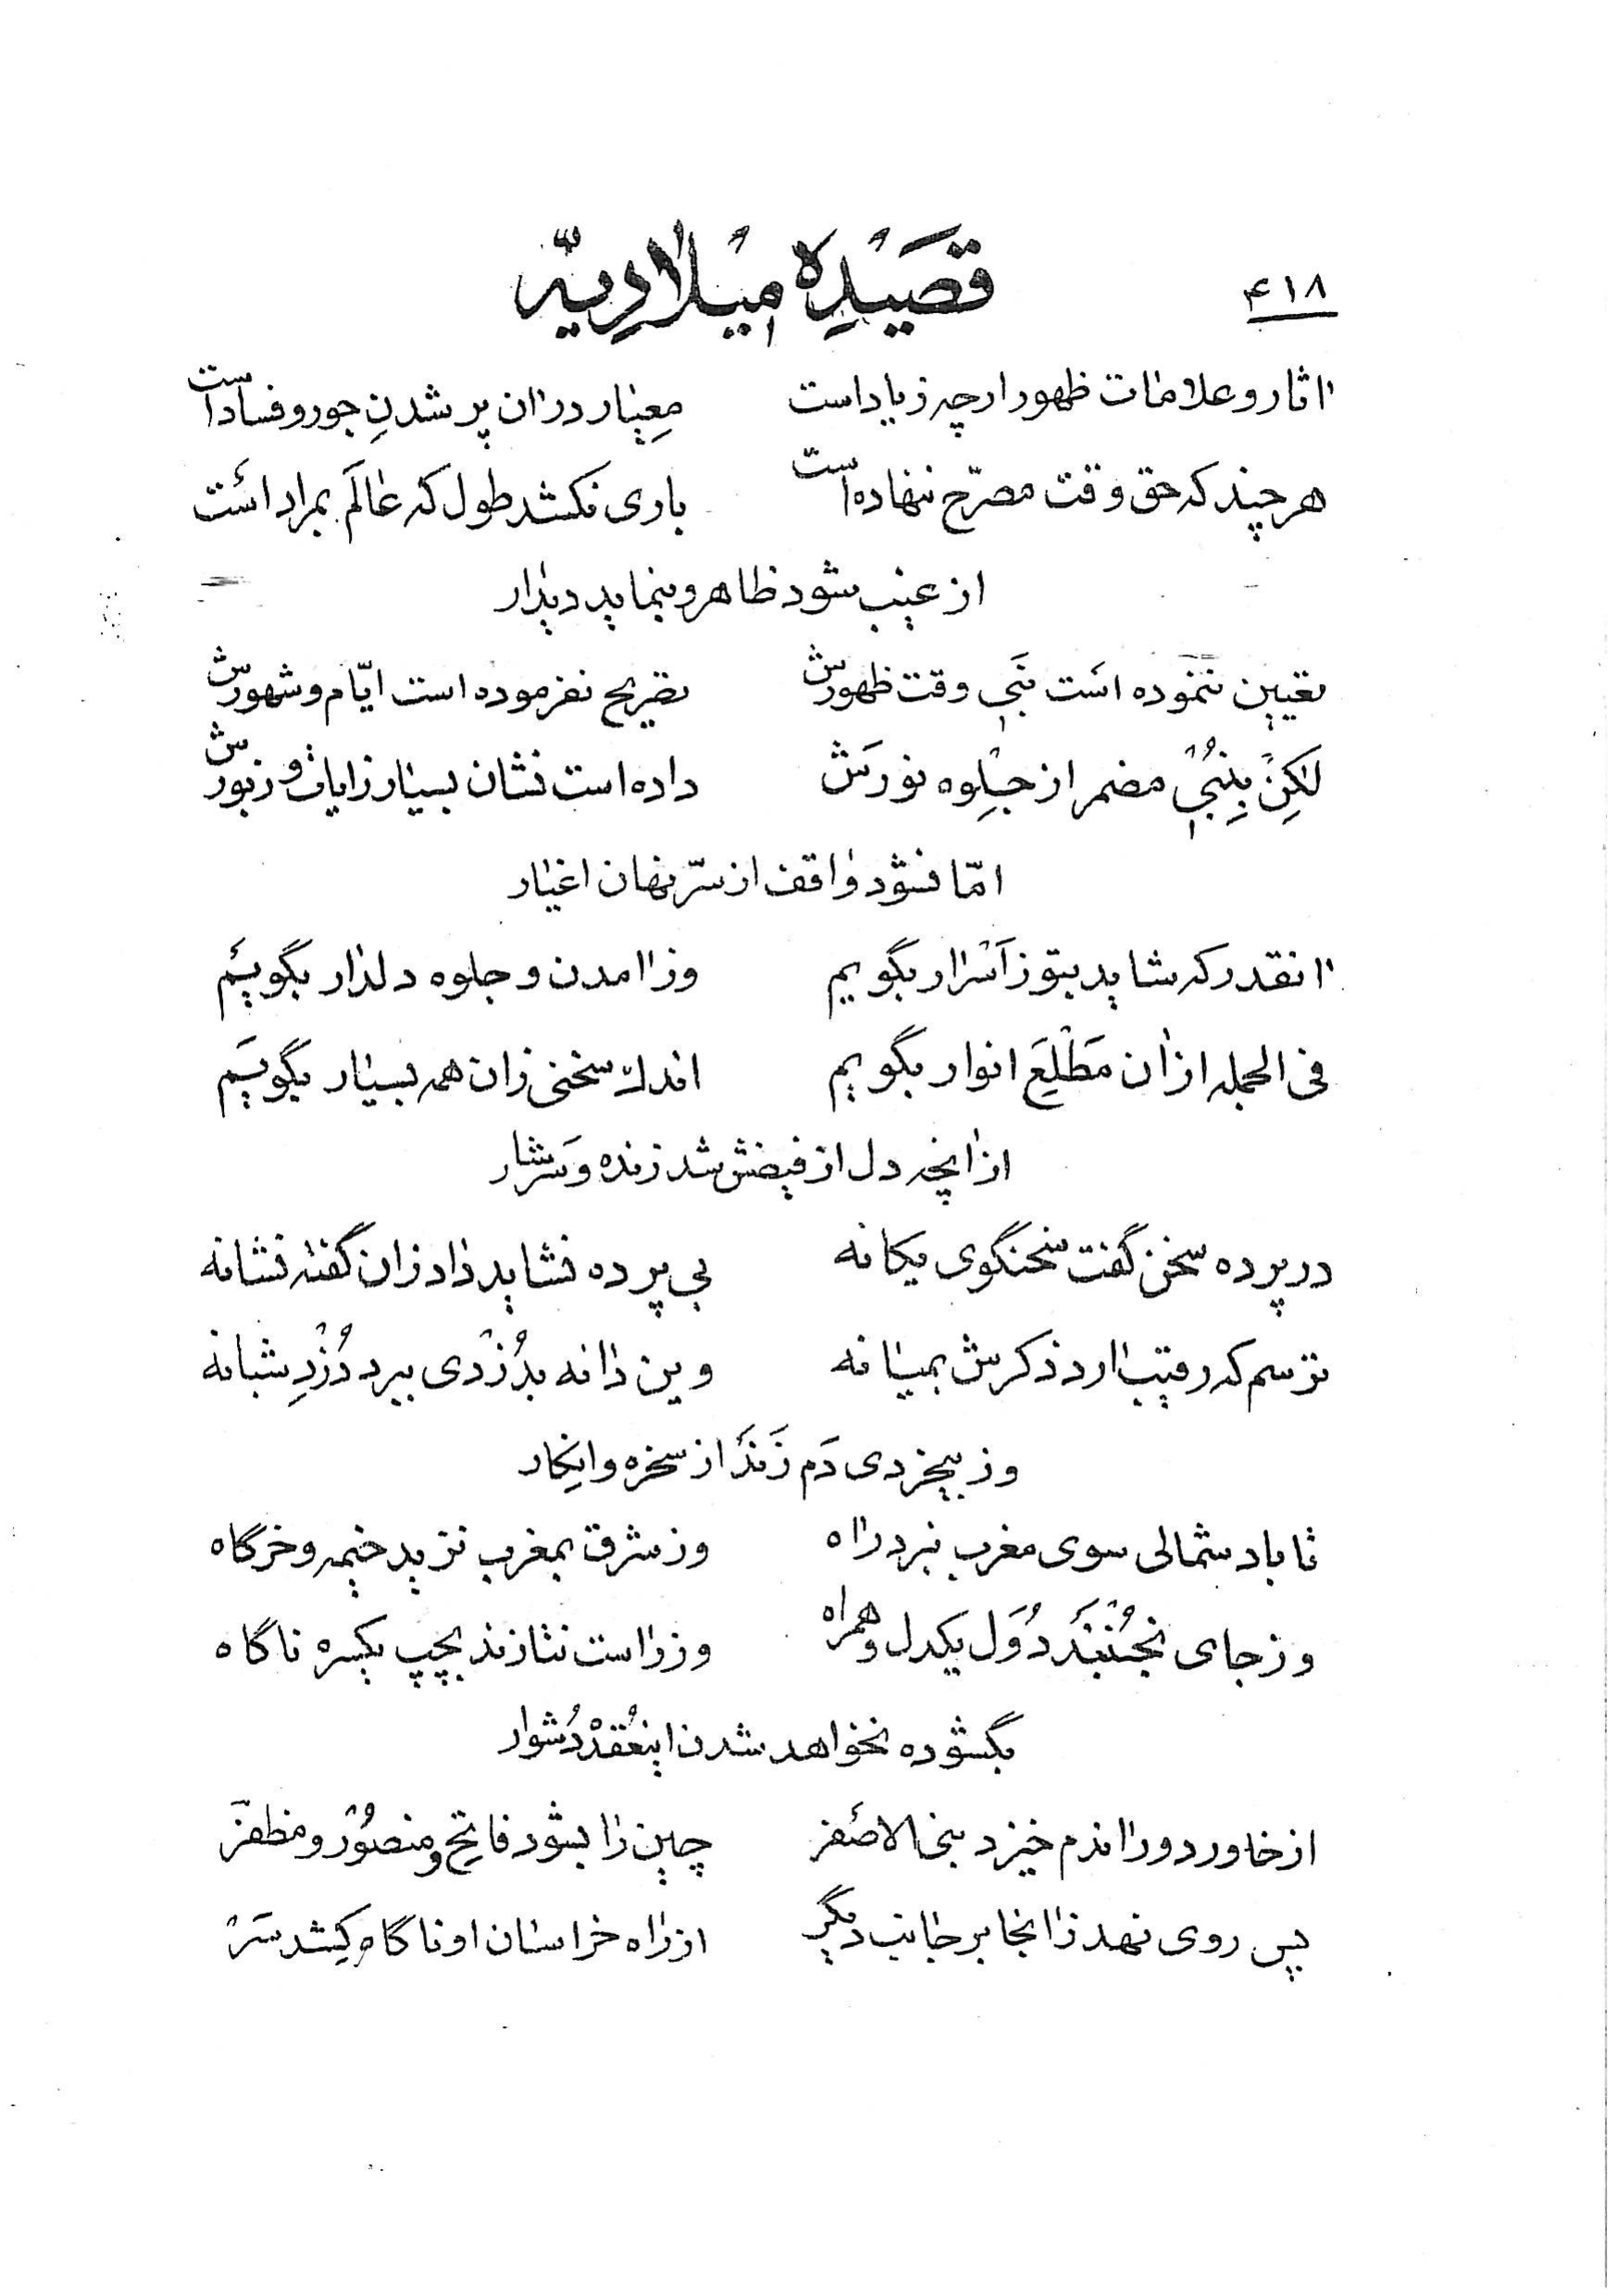 ۴۱۸
قصیده میلادیه
اثار و علامات ظهور ارچه زیاد است معیار در ان پر شدنِ جور و فساد است
هر چند که حق وقت مصرّح ننهاده است باری نکشد طول که عالَم بمراد است
از غیب شود ظاهر و بنماید دیدار
تعیین ننموده است نبی وقت ظهورش تصریح نفرموده است ایّام و شهورش
لکِن بِنُبیِ مضمر از جلوه نورش داده است نشان بسیار زایات و زبورش
امّا نشود واقف از سرّ نهان اغیار
انقدر که شاید بتو ز اسرار بگویم وز امدن و جلوه دلدار بگویم
فی الجمله از ان مَطْلَعِ انوار بگویم اندک سخنی زان همه بسیار بگویم
از انچه دل از فیضش شد زنده و سَرشار
در پرده سخن گفت سخنگوی یکانه بی پرده نشاید داد زان گفته نشانه
ترسم که رقیب ارد ذکرش بمیانه وین دانه بدُزْدی ببرد دُزْدِ شبانه
وز بیخردی دَم زَنَد از سخره و انکِار
تا باد شمالی سوی مغرب نبرد راه وز شرق بمغرب نزید خیمه و خرگاه
وز جای نجُنْبَند دُوَل یکدل و همراه وز راست نتازند بچپ یکسره ناگاه
بگشوده نخواهد شدن اینعُقدْ دُشوار
از خاور دور اندم خیزد بنی الاصَفر چین را بشود فاتح و منصُور و مظفّر
پس روی نهد زانجا بر جانب دیگر از راه خراسان او ناگاه کِشد سَرْ